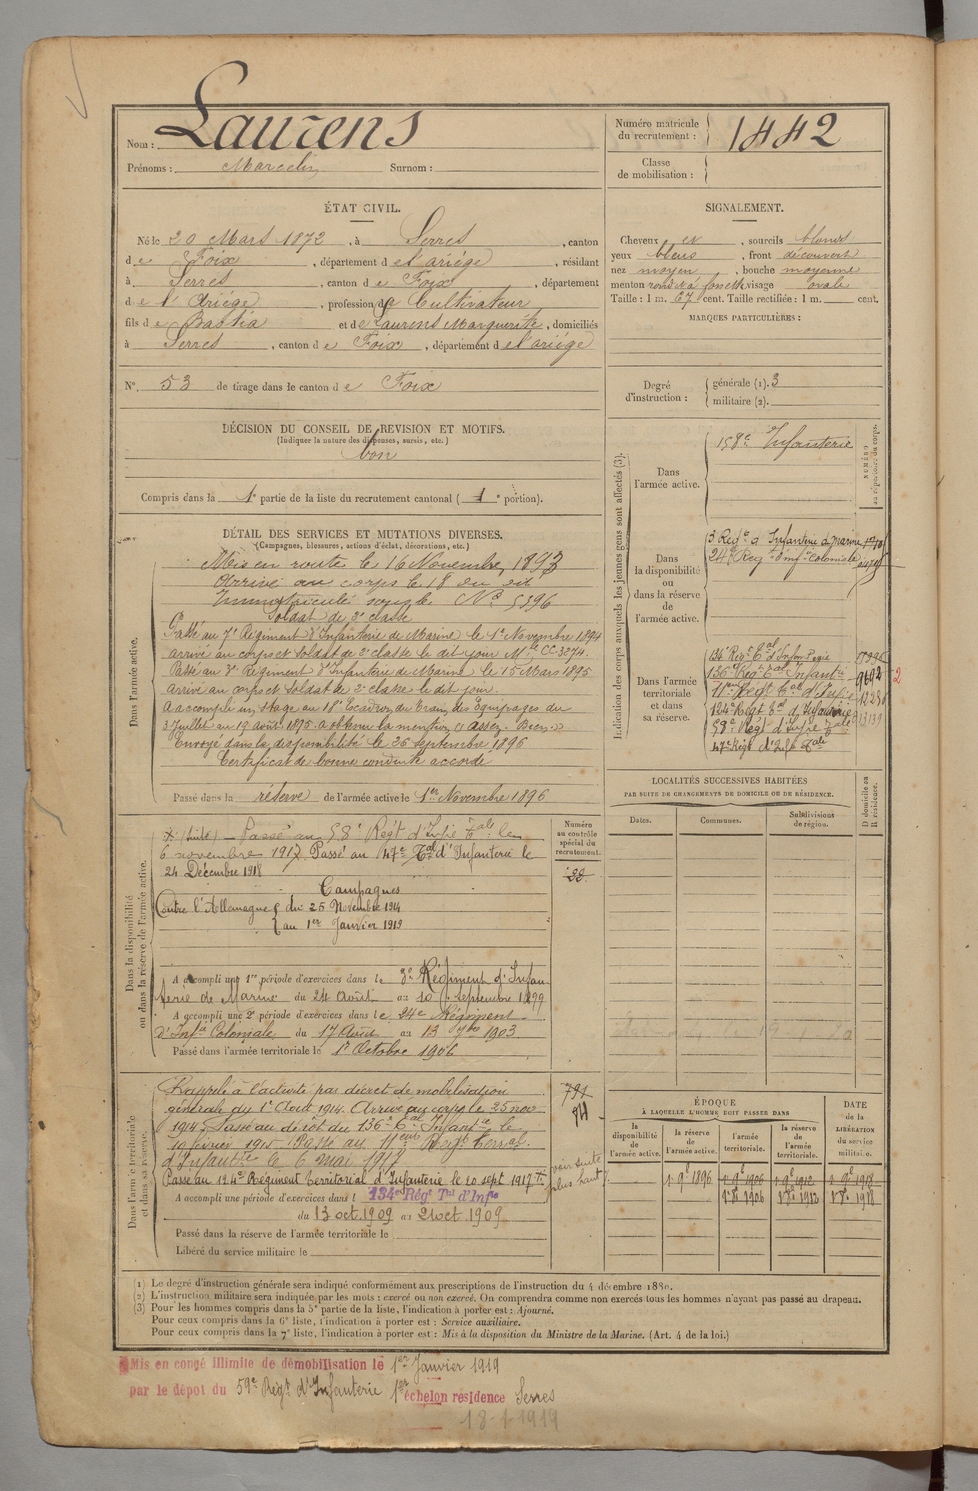 Nom : Laurens
Prénoms : Marcelin Surnom :
Numéro matricule du recrutement : 1442
Classe de mobilisation :
ÉTAT CIVIL.
Né le 20 Mars 1872, à Serres, canton
de Foix, département de l'ariége, résidant
à Serres, canton de Foix, département
de l'Ariége, profession de Cultivateur
fils de Bastia et de Laurens Marguerite, domiciliés
à Serres, canton de Foix, département de l'ariége
N° 53 de tirage dans le canton de Foix
SIGNALEMENT.
Cheveux et, sourcils blonds
yeux bleus, front découvert
nez moyen, bouche moyenne
menton rond visage ovale
Taille : 1 m. 67 cent. Taille rectifiée : 1 m. cent.
MARQUES PARTICULIÈRES :
Degré d'instruction : générale (1). 3
militaire (2).
DÉCISION DU CONSEIL DE REVISION ET MOTIFS.
(Indiquer la nature des dispenses, sursis, etc.)
bon
Compris dans la 1e partie de la liste du recrutement cantonal ( 1e portion).
DÉTAIL DES SERVICES ET MUTATIONS DIVERSES.
(Campagnes, blessures, actions d'éclat, décorations, etc.)
Dans l'armée active.
Mis en route le 16 Novembre 1893
Arrivé au corps le 18 du dit
Immatriculé sous le No 5396
Soldat de 2e classe
Passé au 7e Régiment d'Infanterie de Marine le 1er Novembre 1894
arrivé au corps et soldat de 2e classe le dit jour Mle CC 3274.
Passé au 3e Régiment d'Infanterie de Marine le 15 Mars 1895
arrivé au corps et Soldat de 2e classe le dit jour.
A accompli un stage au 18e Escadron du Train des Equipages du
3 Juillet au 19 août 1895. a obtenu la mention « Assez-Bien »
Envoyé dans la disponibilité le 26 septembre 1896
Certificat de bonne conduite accordé
Passé dans la réserve de l'armée active le 1er Novembre 1896
Indication des corps auxquels les jeunes gens sont affectés (3).
NUMÉRO au répertoire du corps.
Dans l'armée active.
158e Infanterie
Dans la disponibilité ou dans la réserve de l'armée active.
3 Regt d'Infanterie d marine
24e Regt d'Infie Coloniale
Dans l'armée territoriale et dans sa réserve.
134e Regt Tal d'Infanterie
136e Regt Tal Infantie 9692 2
11eme Regt Tal d'Infie 12286
124e Regt Tal d'Infanterie 13139
58e Regt d'Infie Tale
47e Regt d'Infie Tale
LOCALITÉS SUCCESSIVES HABITÉES
PAR SUITE DE CHANGEMENTS DE DOMICILE OU DE RÉSIDENCE.
Dates. Communes. Subdivisions de région. D domicile ou R résidence.
Dans la disponibilité ou dans la réserve de l'armée active.
Numéro au contrôle spécial du recrutement.
22
X (suite) — Passé au 58e Regt d'Infie Tale le
6 novembre 1917 Passé au 47e Tal d'Infanterie le
24 Décembre 1918
Campagnes
Contre l'Allemagne { du 25 Novembre 1914
{ au 1er Janvier 1919
A accompli une 1re période d'exercices dans le 3e Régiment d'Infan
terie de Marine du 24 Août au 10 septembre 1899
A accompli une 2e période d'exercices dans le 24e Régiment
d'Infie Coloniale du 17 Août au 13 7bre 1903
Passé dans l'armée territoriale le 1er Octobre 1906
Dans l'armée territoriale et dans sa réserve.
Rappelé à l'activité par décret de mobilisation
générale du 1er Août 1914. Arrivé au corps le 25 nov
1914. Passé au dépôt du 136e Tal Infantie le
10 février 1915 Passé au 11eme Regt Terral
d'Infantrie le 6 mai 1917
Passé au 124e Régiment Territorial d'Infanterie le 20 sept 1917 X
voir suite plus haut
A accompli une période d'exercices dans l 134e Régt Tal d'Infie
du 13 oct. 1909 au 21 oct. 1909
Passé dans la réserve de l'armée territoriale le
Libéré du service militaire le
ÉPOQUE
À LAQUELLE L'HOMME DOIT PASSER DANS
la disponibilité de l'armée active. la réserve de l'armée active. l'armée territoriale. la réserve de l'armée territoriale.
DATE de la LIBÉRATION du service militaire.
1 9e 1896 1 9e 1906 1 9e 1912 1 9e 1918
1 8e 1906 1 8e 1912 1 8e 1918
(1) Le degré d'instruction générale sera indiqué conformément aux prescriptions de l'instruction du 4 décembre 1889.
(2) L'instruction militaire sera indiquée par les mots : exercé ou non exercé. On comprendra comme non exercés tous les hommes n'ayant pas passé au drapeau.
(3) Pour les hommes compris dans la 5e partie de la liste, l'indication à porter est : Ajourné.
Pour ceux compris dans la 6e liste, l'indication à porter est : Service auxiliaire.
Pour ceux compris dans la 7e liste, l'indication à porter est : Mis à la disposition du Ministre de la Marine. (Art. 4 de la loi.)
Mis en congé illimité de démobilisation le 1er Janvier 1919
par le dépot du 59e Régt d'Infanterie 1er échelon résidence Serres
18-1-1919